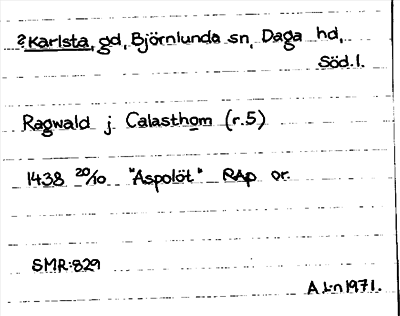 ?Karlsta, gd, Björnlunda sn, Daga hd,
Söd.l.
Ragwald j Calasthom (r.5)
1438 20/10 "Aspolöt" RAp or.
SMR:829
A L:n 1971.